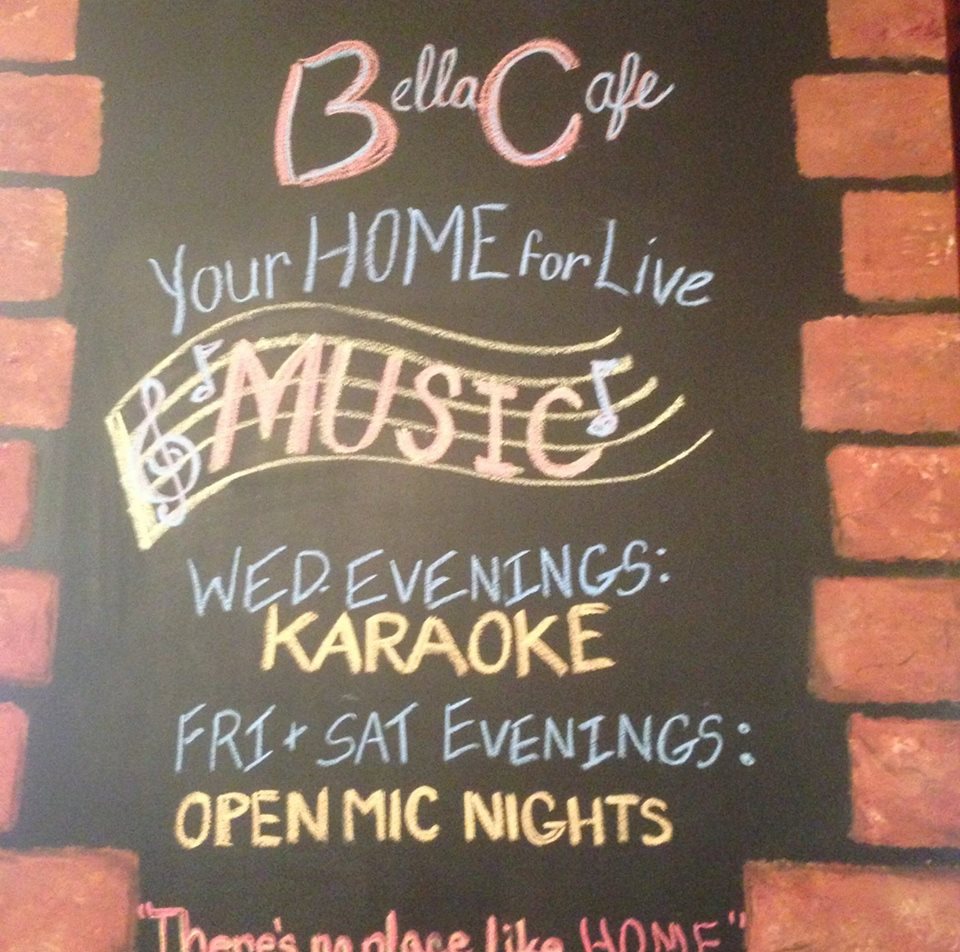 Bella Cafe
Your HOME for Live
MUSIC
WED. EVENINGS:
KARAOKE
FRI + SAT EVENINGS:
OPEN MIC NIGHTS
"There's no place like HOME"